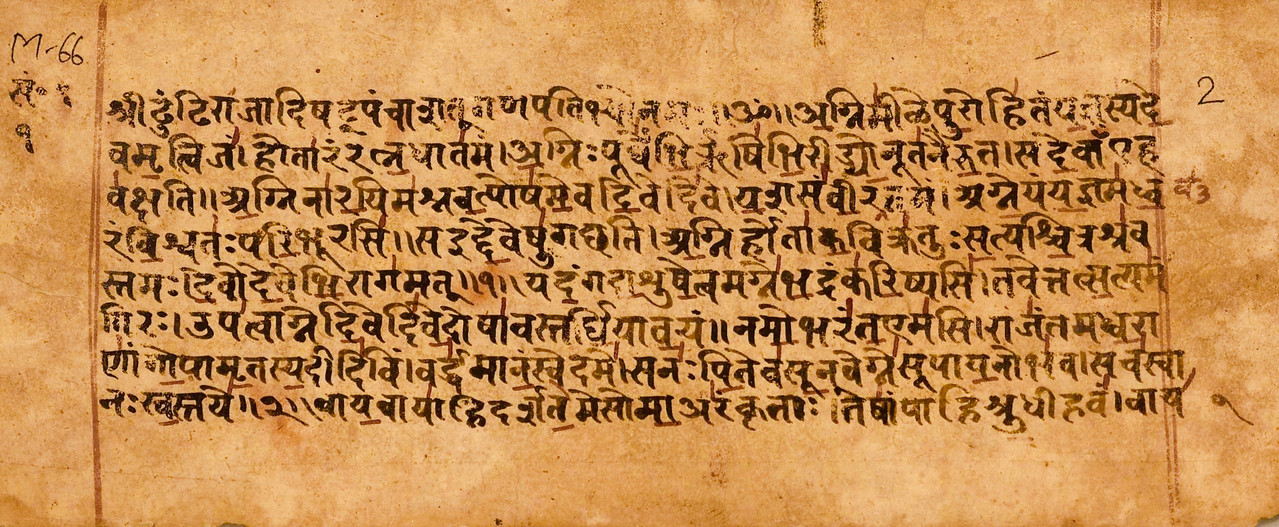 M-66
2
१
श्रीढुंढिराजादिषट्पंचाशत् गणपतिभ्यो नमः ॥ॐ॥ अग्निमीळेपुरोहितंयज्ञस्यदे
वमृत्विजं।होतारंरत्नधातमं।अग्निःपूर्वेभिर्ऋषिभिरीड्योनूतनैरुत।सदेवाँएह
वक्षति॥अग्निनारयिमश्नवत्पोषमेवदिवेदिवे।यशसंवीरवत्तमं।अग्नेयंयज्ञमध्व
रंविश्वतःपरिभूरसि॥सइद्देवेषुगछति।अग्निर्होताकविक्रतुःसत्यश्चित्रश्रव
स्तमः।देवोदेवेभिरागमत्॥१॥यदंगदाशुषेत्वमग्नेभद्रंकरिष्यसि।तवेत्तत्सत्यमं
गिरः।उपत्वाग्नेदिवेदिवेदोषावस्तर्धियावयं॥नमोभरंतएमसि।राजंतमध्वरा
णांगोपामृतस्यदीदिविं।वर्द्धमानंस्वेदमे।सनःपितेवसूनवेग्नेसूपायनोभव।सचस्वा
नःस्वस्तये॥२॥वायवायाहिदर्शतेमेसोमाअरंकृताः।तेषांपाहिश्रुधीहवं।वाय